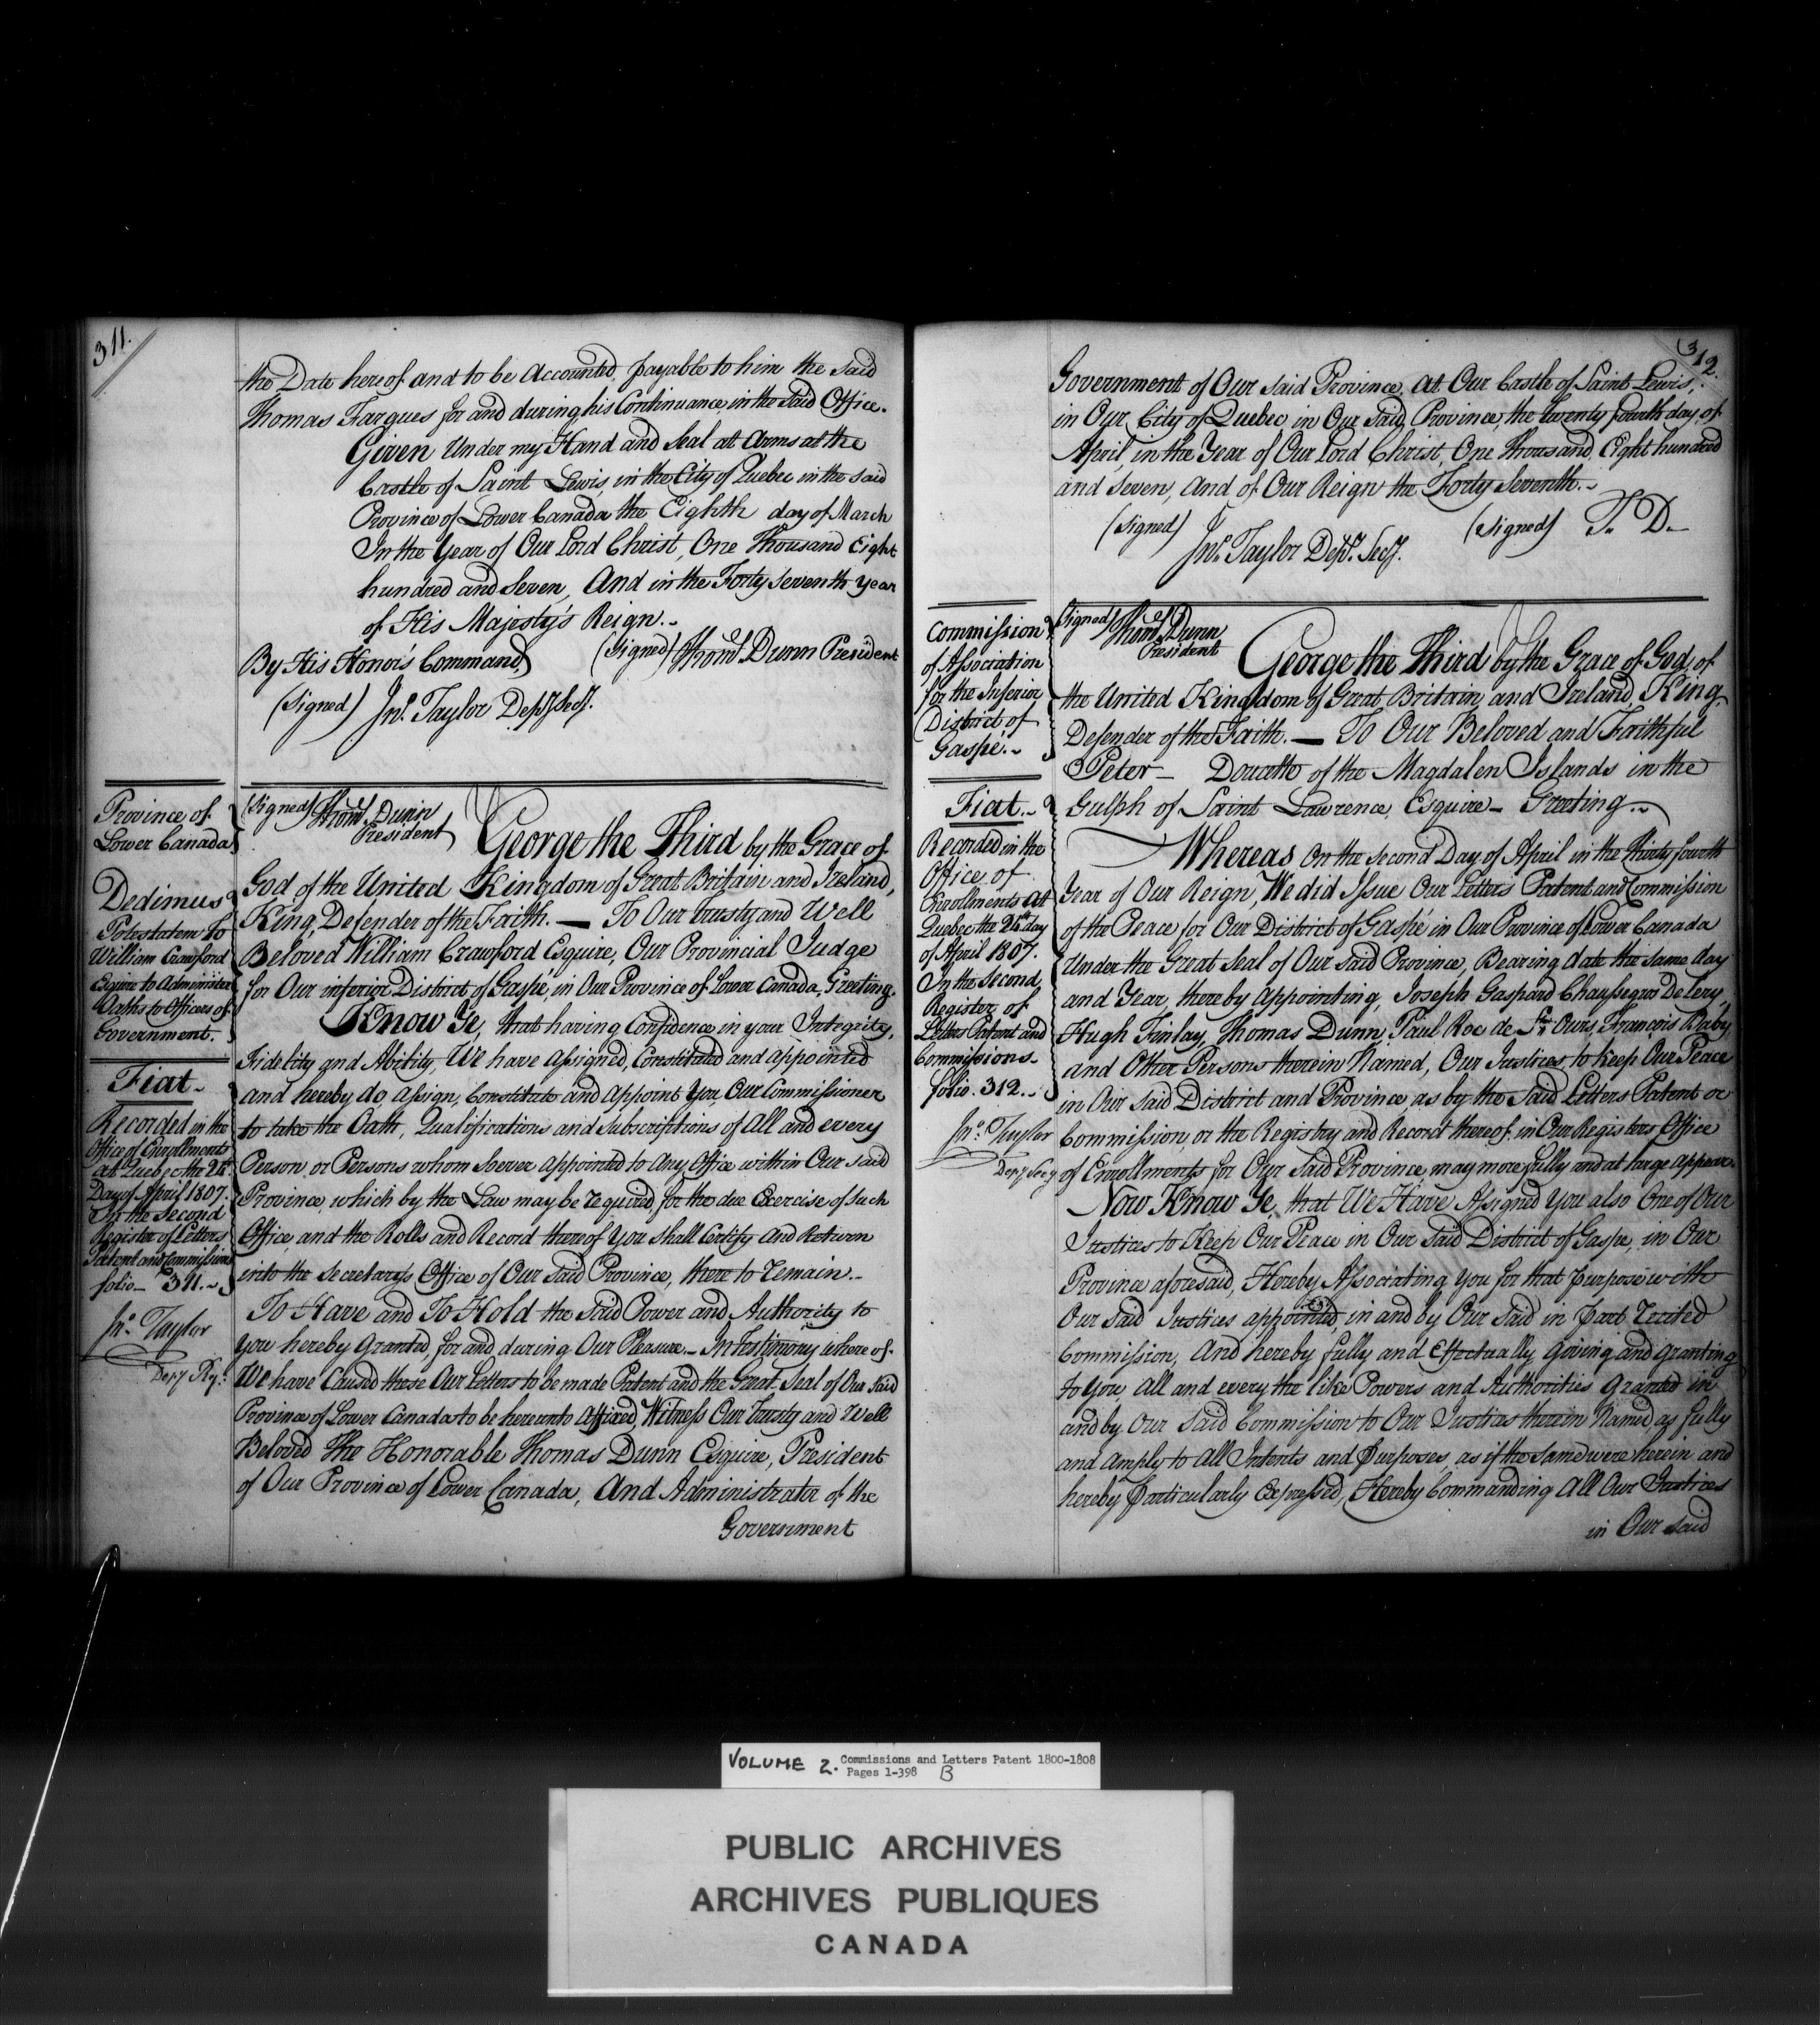 311.
the Date hereof and to be Accounted, payable to him the said
Thomas Fargues for and during his Continuance in the said Office.
Given Under my Hand and Seal at Arms at the
Castle of Saint Lewis, in the City of Quebec in the said
Province of Lower Canada the Eighth day of March
In the Year of Our Lord Christ, One Thousand Eight
hundred and Seven, And in the Forty Seventh Year
of His Majesty's Reign.-
(Signed) Thoms. Dunn President
By His Honor's Command,
(Signed) Jno. Taylor Depy. Secy.
Province of
Lower Canada
Dedimus
Potestatem to
William Crawford
Esquire to Administer
Oaths to Officers of
Government.
Fiat.-
Recorded in the
Office of Enrollments
at Quebec the 24th.
Day of April 1807.
In the Second
Register of Letters
Patent and Commissions
folio- 311.-
Jno. Taylor
Depy Rgr.
(Signed) Thoms. Dunn
President
George the Third by the Grace of
God of the United Kingdom of Great Britain and Ireland,
King, Defender of the Faith. — To Our trusty and Well
Beloved William Crawford Esquire, Our Provincial Judge
for Our inferior District of Gaspé, in Our Province of Lower Canada, Greeting.
Know Ye, that having Confidence in your Integrity,
Fidelity and Ability, We have assigned, Constituted and appointed
and hereby do assign, Constitute and Appoint You, Our Commissioner
to take the Oath, Qualifications and Subscriptions of All and every
Person or Persons whom Soever appointed to Any Office within Our said
Province, which by the Law may be required, for the due Exercise of Such
Office, and the Rolls and Record thereof You shall Certify and Return
into the Secretary's Office of Our said Province, there to remain.-
To Have and To Hold the said Power and Authority to
you hereby Granted, for and during Our Pleasure.- In Testimony where of.
We have Caused these Our Letters to be made Patent and the Great Seal of Our Said
Province of Lower Canada to be hereunto Affixed, Witness Our trusty and Well
Beloved The Honorable Thomas Dunn Esquire, President
of Our Province of Lower Canada, And Administrator of the
Government
312.
Government of Our said Province. At Our Castle of Saint Lewis,
in Our City of Quebec in Our said Province, the twenty fourth day of
April, in the Year of Our Lord Christ, One thousand, Eight hundred
and Seven, And of Our Reign the Forty Seventh.-
(Signed) T. D.-
(Signed)
Jno. Taylor Depy. Secy.
Commission
of Association
for the Inferior
District of
Gaspé.-
Fiat.-
Recorded in the
Office of
Enrollments At
Quebec the 24th day
of April 1807.
In the Second
Register of
Letters Patent and
Commissions-
folio. 312.-
Jno. Taylor
Depy Regr
(Signed) Thoms. Dunn
President
George the Third by the Grace of God, of
the United Kingdom of Great Britain and Ireland, King,
Defender of the Faith. — To Our Beloved and Faithful
Peter- Doucette of the Magdalen Islands in the
Gulph of Saint Lawrence, Esquire- Greeting.-
Whereas On the Second Day of April in the thirty fourth
Year of Our Reign, We did Issue Our Letters Patent and Commission
of the Peace for Our District of Gaspé in Our Province of Lower Canada
Under the Great Seal of Our said Province, Bearing date the same day
and Year, thereby Appointing, Joseph Gaspard Chaussegros De Lery,
Hugh Finlay, Thomas Dunn, Paul Roc de St. Ours, François Baby,
and Other Persons therein Named, Our Justices, to keep Our Peace
in Our said District and Province as by the said Letters Patent or
Commission, or the Registry and Record thereof in Our Registers Office
of Enrollments for Our Said Province, may more fully and at large appear.
Now Know Ye, that We Have Assigned you also One of Our
Justices to Keep Our Peace in Our Said District of Gaspe, in Our
Province aforesaid, Hereby Associating You for that purpose with
Our said Justices appointed, in and by Our said in part recited
Commission, And hereby fully and Effectually giving and granting
to you All and every the like Powers and Authorities granted in
and by Our Said Commission to Our Justices therein Named, as fully
and Amply to All Intents and Purposes, as if the same were herein and
hereby Particularly Expressed, Hereby Commanding All Our Justices
in Our said
VOLUME 2. Commissions and Letters Patent 1800-1808
Pages 1-398 B
PUBLIC ARCHIVES
ARCHIVES PUBLIQUES
CANADA